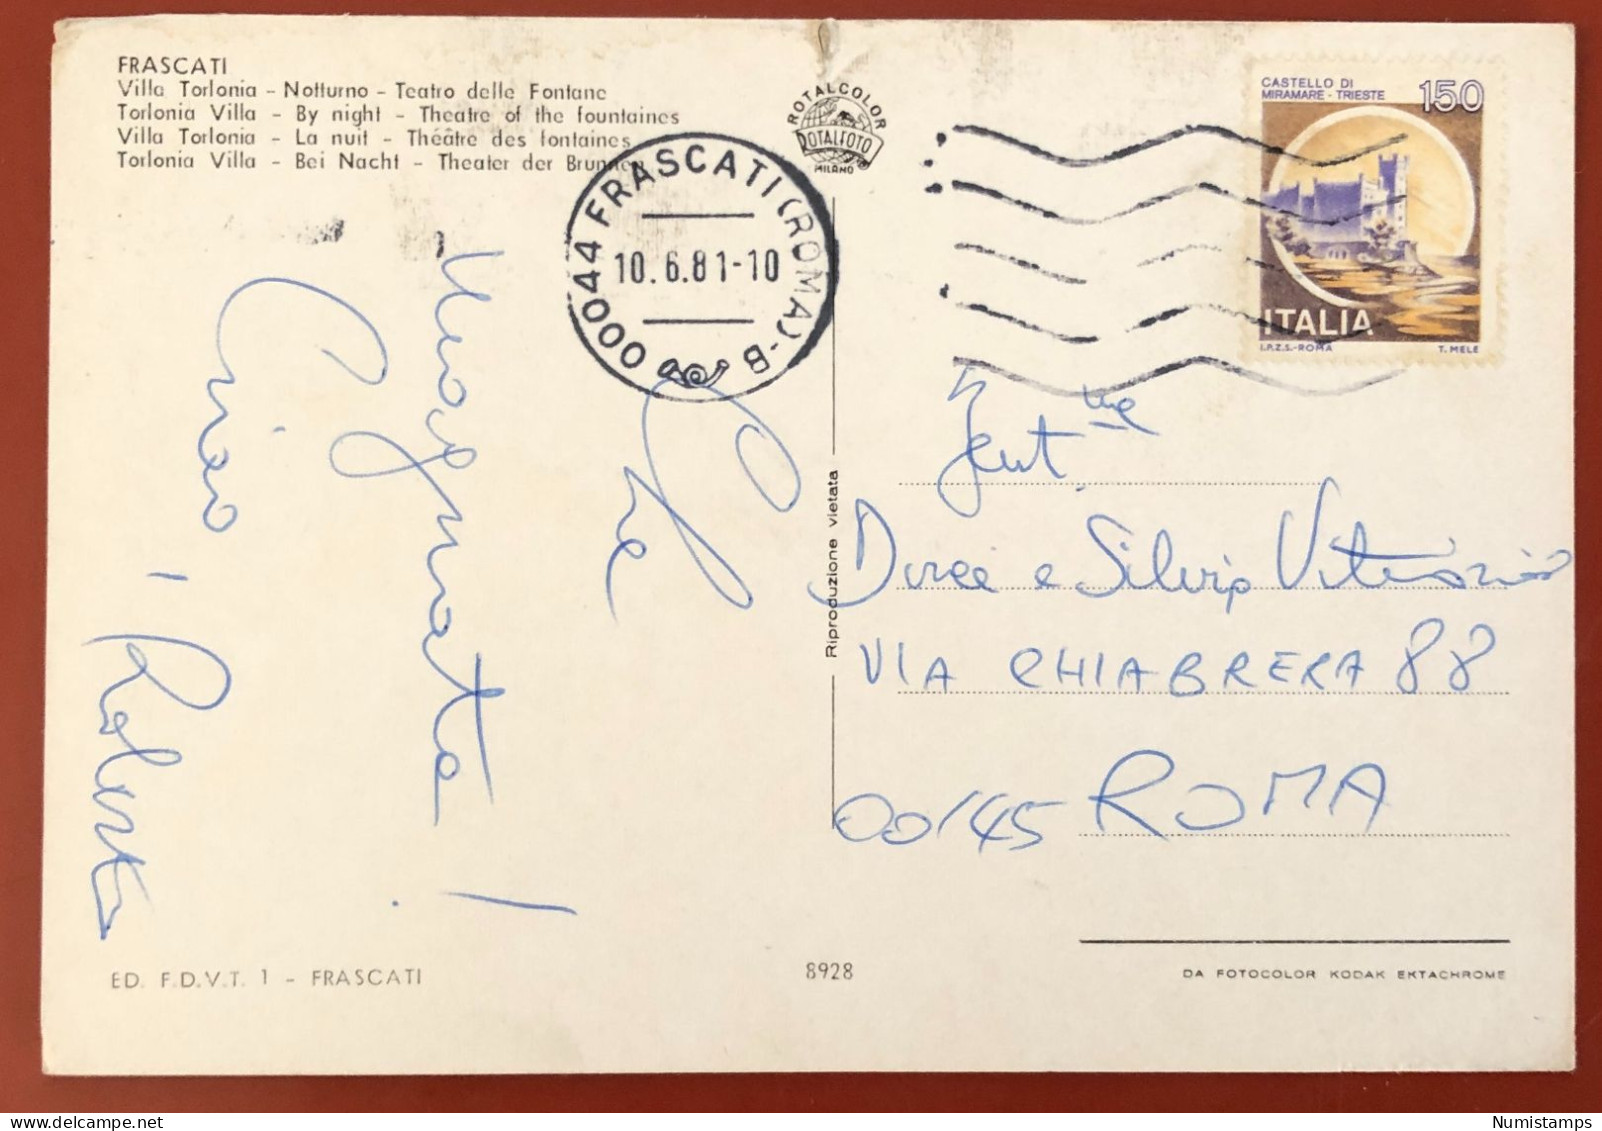 FRASCATI
Villa Torlonia - Notturno - Teatro delle Fontane
Torlonia Villa - By night - Theatre of the fountaines
Villa Torlonia - La nuit - Théâtre des fontaines
Torlonia Villa - Bei Nacht - Theater der Brunnen
ROTALCOLOR
ROTALFOTO
MILANO
00044 FRASCATI (ROMA) - B
10.6.81-10
CASTELLO DI
MIRAMARE - TRIESTE
150
ITALIA
I.P.Z.S.-ROMA
T. MELE
Che
magnata!
Ciao!
Roberto
Riproduzione vietata
Gent.me
Dirce e Silvia
VIA CHIABRERA 88
00145 ROMA
ED. F.D.V.T. 1 - FRASCATI
8928
DA FOTOCOLOR KODAK EKTACHROME
Numistamps